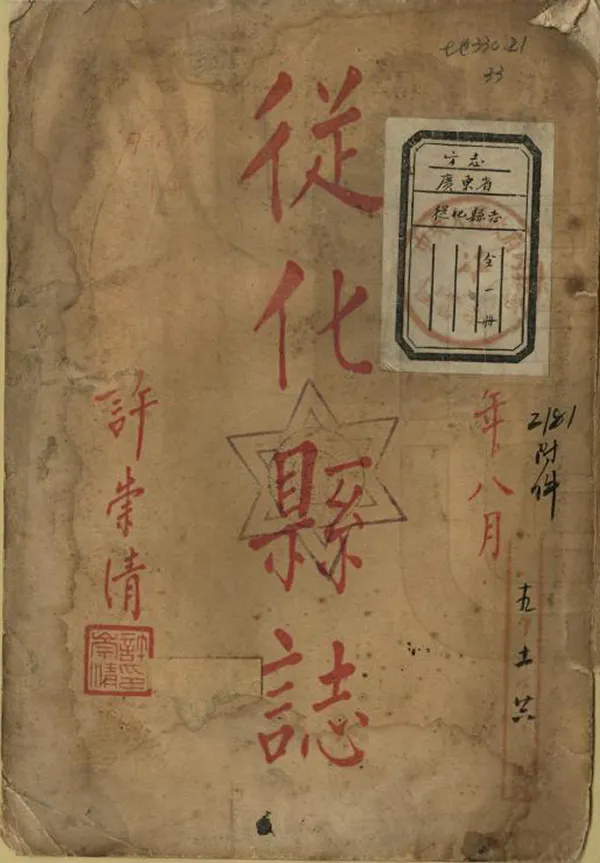 地330.21
33
方志
廣東省
從化縣志
全一册
年八月
2181
附件
從化縣誌
許崇清
許崇清印